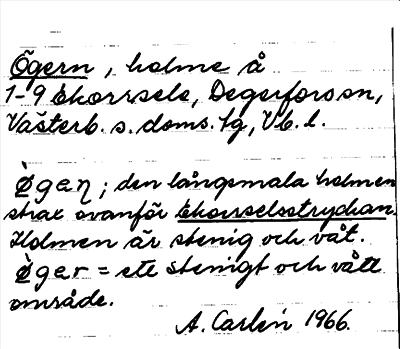 Ögern, holme å
1-9 Ekorrsele, Degerfors sn,
Västerb. s. doms. lg, Vb. l.
Ø̀gaɳ; den långsmala holmen
strax ovanför Ekorrselsstryckan.
Holmen är stenig och våt.
Ø̀ger = ett stenigt och vått
område.
A. Carlén 1966.